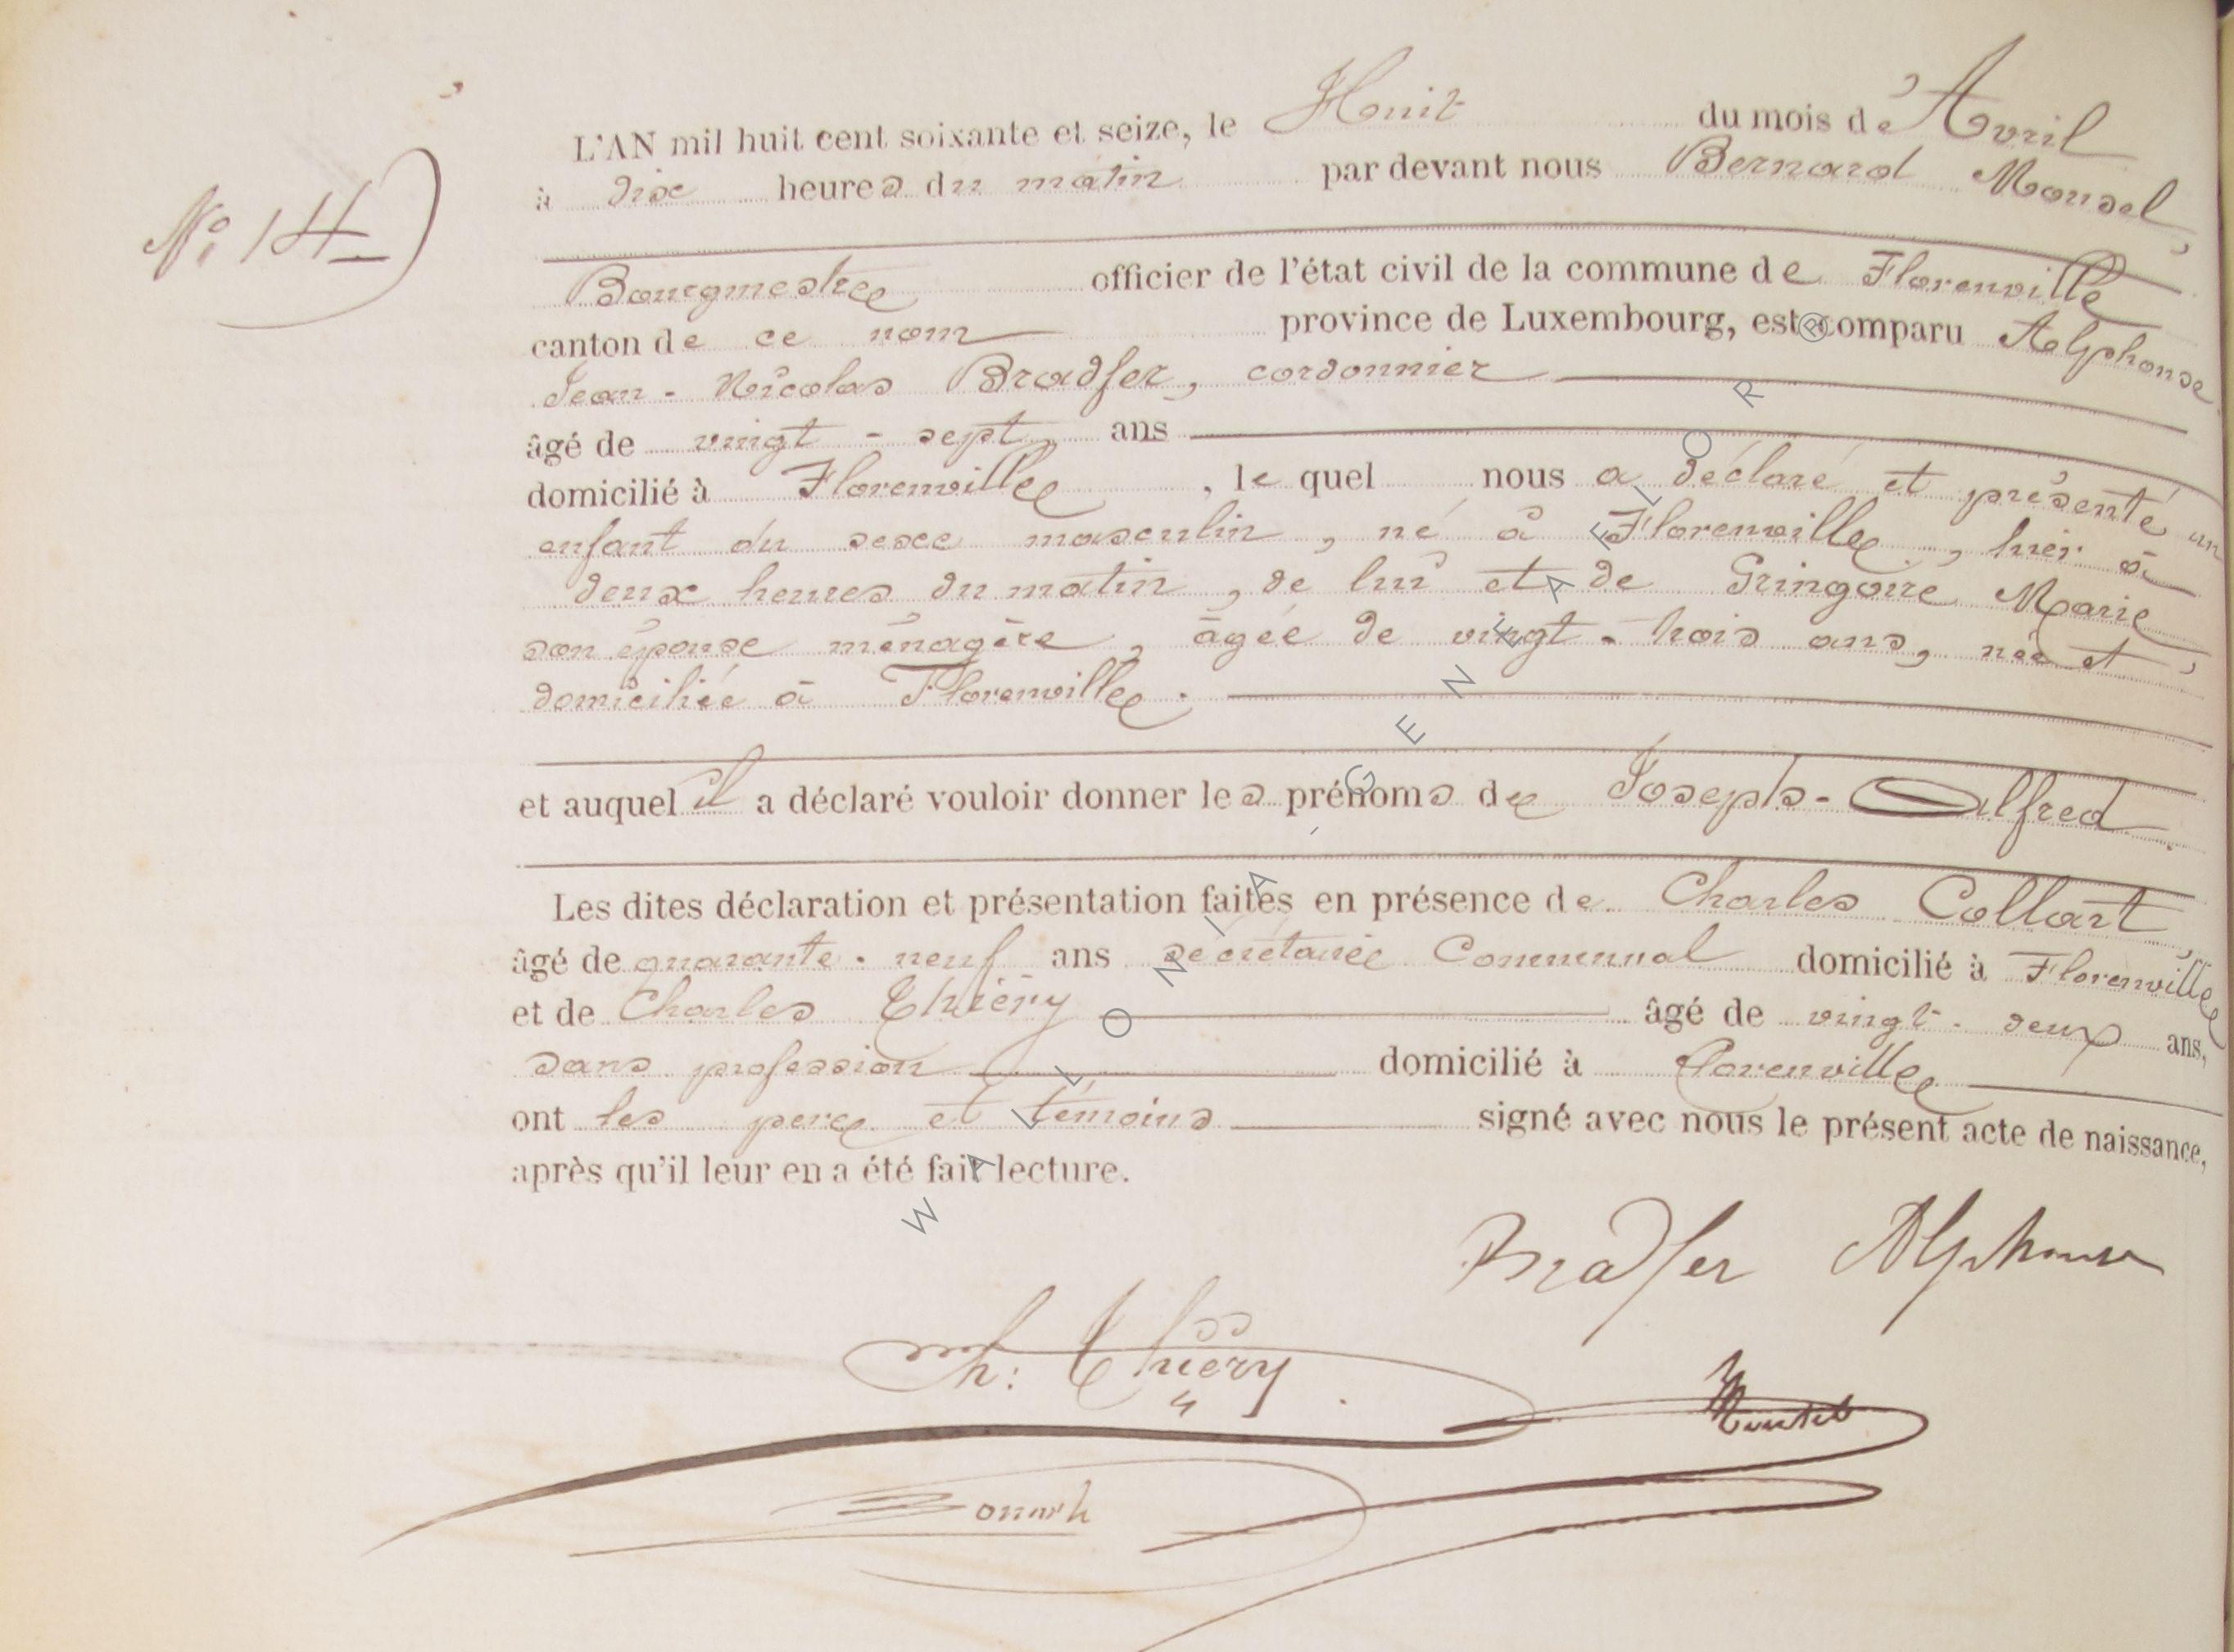 L'AN mil huit cent soixante et seize, le Huit du mois de Avril
à dix heures du matin par devant nous Bernard Mousel,
N° 14
Bourgmestre officier de l'état civil de la commune de Florenville
canton de ce nom province de Luxembourg, est comparu Alphonse
Jean-Nicolas Bradfer, cordonnier
âgé de vingt-sept ans
domicilié à Florenville, le quel nous a déclaré et présenté un
enfant du sexe masculin, né à Florenville, hier à
deux heures du matin, de lui et de Gringoire Marie,
son épouse ménagère, âgée de vingt-trois ans, née et
domiciliée à Florenville.
et auquel il a déclaré vouloir donner les prénoms de Joseph-Alfred.
Les dites déclaration et présentation faites en présence de Charles Collart,
âgé de quarante-neuf ans secrétaire Communal domicilié à Florenville
et de Charles Thiéry âgé de vingt-deux ans,
sans profession domicilié à florenville
ont les père et témoins signé avec nous le présent acte de naissance,
après qu'il leur en a été fait lecture.
Bradfer Alphonse
Ch: Thiéry
Mousel
WALLONIA, GENEAFLOR ®